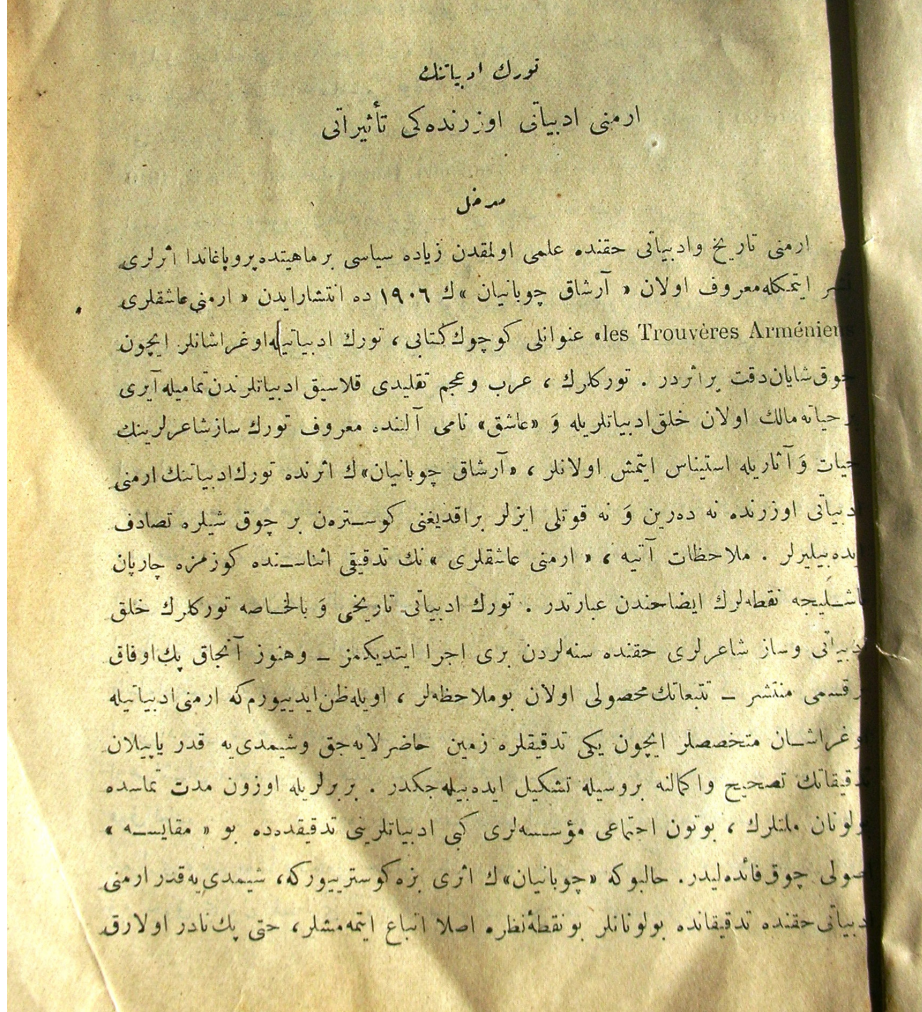 تورك ادبياتنك
ارمنى ادبياتى اوزرنده‌كى تأثيراتى
مدخل
ارمنى تاريخ وادبياتى حقنده علمى اولمقدن زياده سياسى برماهيتده پروپاغاندا اثرلرى
ايتمكله معروف اولان « آرشاق چوبانيان »ك ١٩٠٦ ده انتشارايدن « ارمنى عاشقلرى
les Trouvères Arméniens» عنوانلى كوچوك كتابى ، تورك ادبياتيله اوغراشانلر ايچون
چوق شايان دقت براثردر . توركلرك ، عرب وعجم تقليدى قلاسيق ادبياتلرندن تماميله آيرى
بر حياته مالك اولان خلق ادبياتلريله وَ «عاشق» نامى آلتنده معروف تورك سازشاعرلرينك
حيات وَ آثاريله استيناس ايتمش اولانلر ، «آرشاق چوبانيان»ك اثرنده تورك ادبياتنك ارمنى
ادبياتى اوزرنده نه ده‌رين وَ نه قوتلى ايزلر براقديغنى كوسترەن بر چوق شيلره تصادف
ايده‌بيليرلر . ملاحظات آتيه ، « ارمنى عاشقلرى » نك تدقيقى اثناسنده كوزمزه چارپان
باشليجه نقطه‌لرك ايضاحندن عبارتدر . تورك ادبياتى تاريخى وَ بالخاصه توركلرك خلق
ادبياتى وساز شاعرلرى حقنده سنه‌لردن برى اجرا ايتديكمز ــ وهنوز آنجاق پك اوفاق
بر قسمى منتشر ــ تتبعاتك محصولى اولان بوملاحظه‌لر ، اويله ظن ايدييورم كه ارمنى ادبياتيله
اوغراشان متخصصلر ايچون يكى تدقيقلره زمين حاضرلايه‌جق وشيمدى‌يه قدر ياپيلان
تدقيقاتك تصحيح واكمالنه بروسيله تشكيل ايده‌بيله‌جكدر . بربرلريله اوزون مدت تماسده
بولونان ملتلرك ، بوتون اجتماعى مؤسسه‌لرى كبى ادبياتلرينى تدقيقده‌ده بو « مقايسه »
اصولى چوق فائده‌ليدر. حالبوكه «چوبانيان»ك اثرى بزه كوسترييوركه، شيمدى‌يه قدر ارمنى
ادبياتى حقنده تدقيقانده بولونانلر بونقطهٔ نظره اصلا اتباع ايتمه‌مشلر، حتى پك نادر اولارق